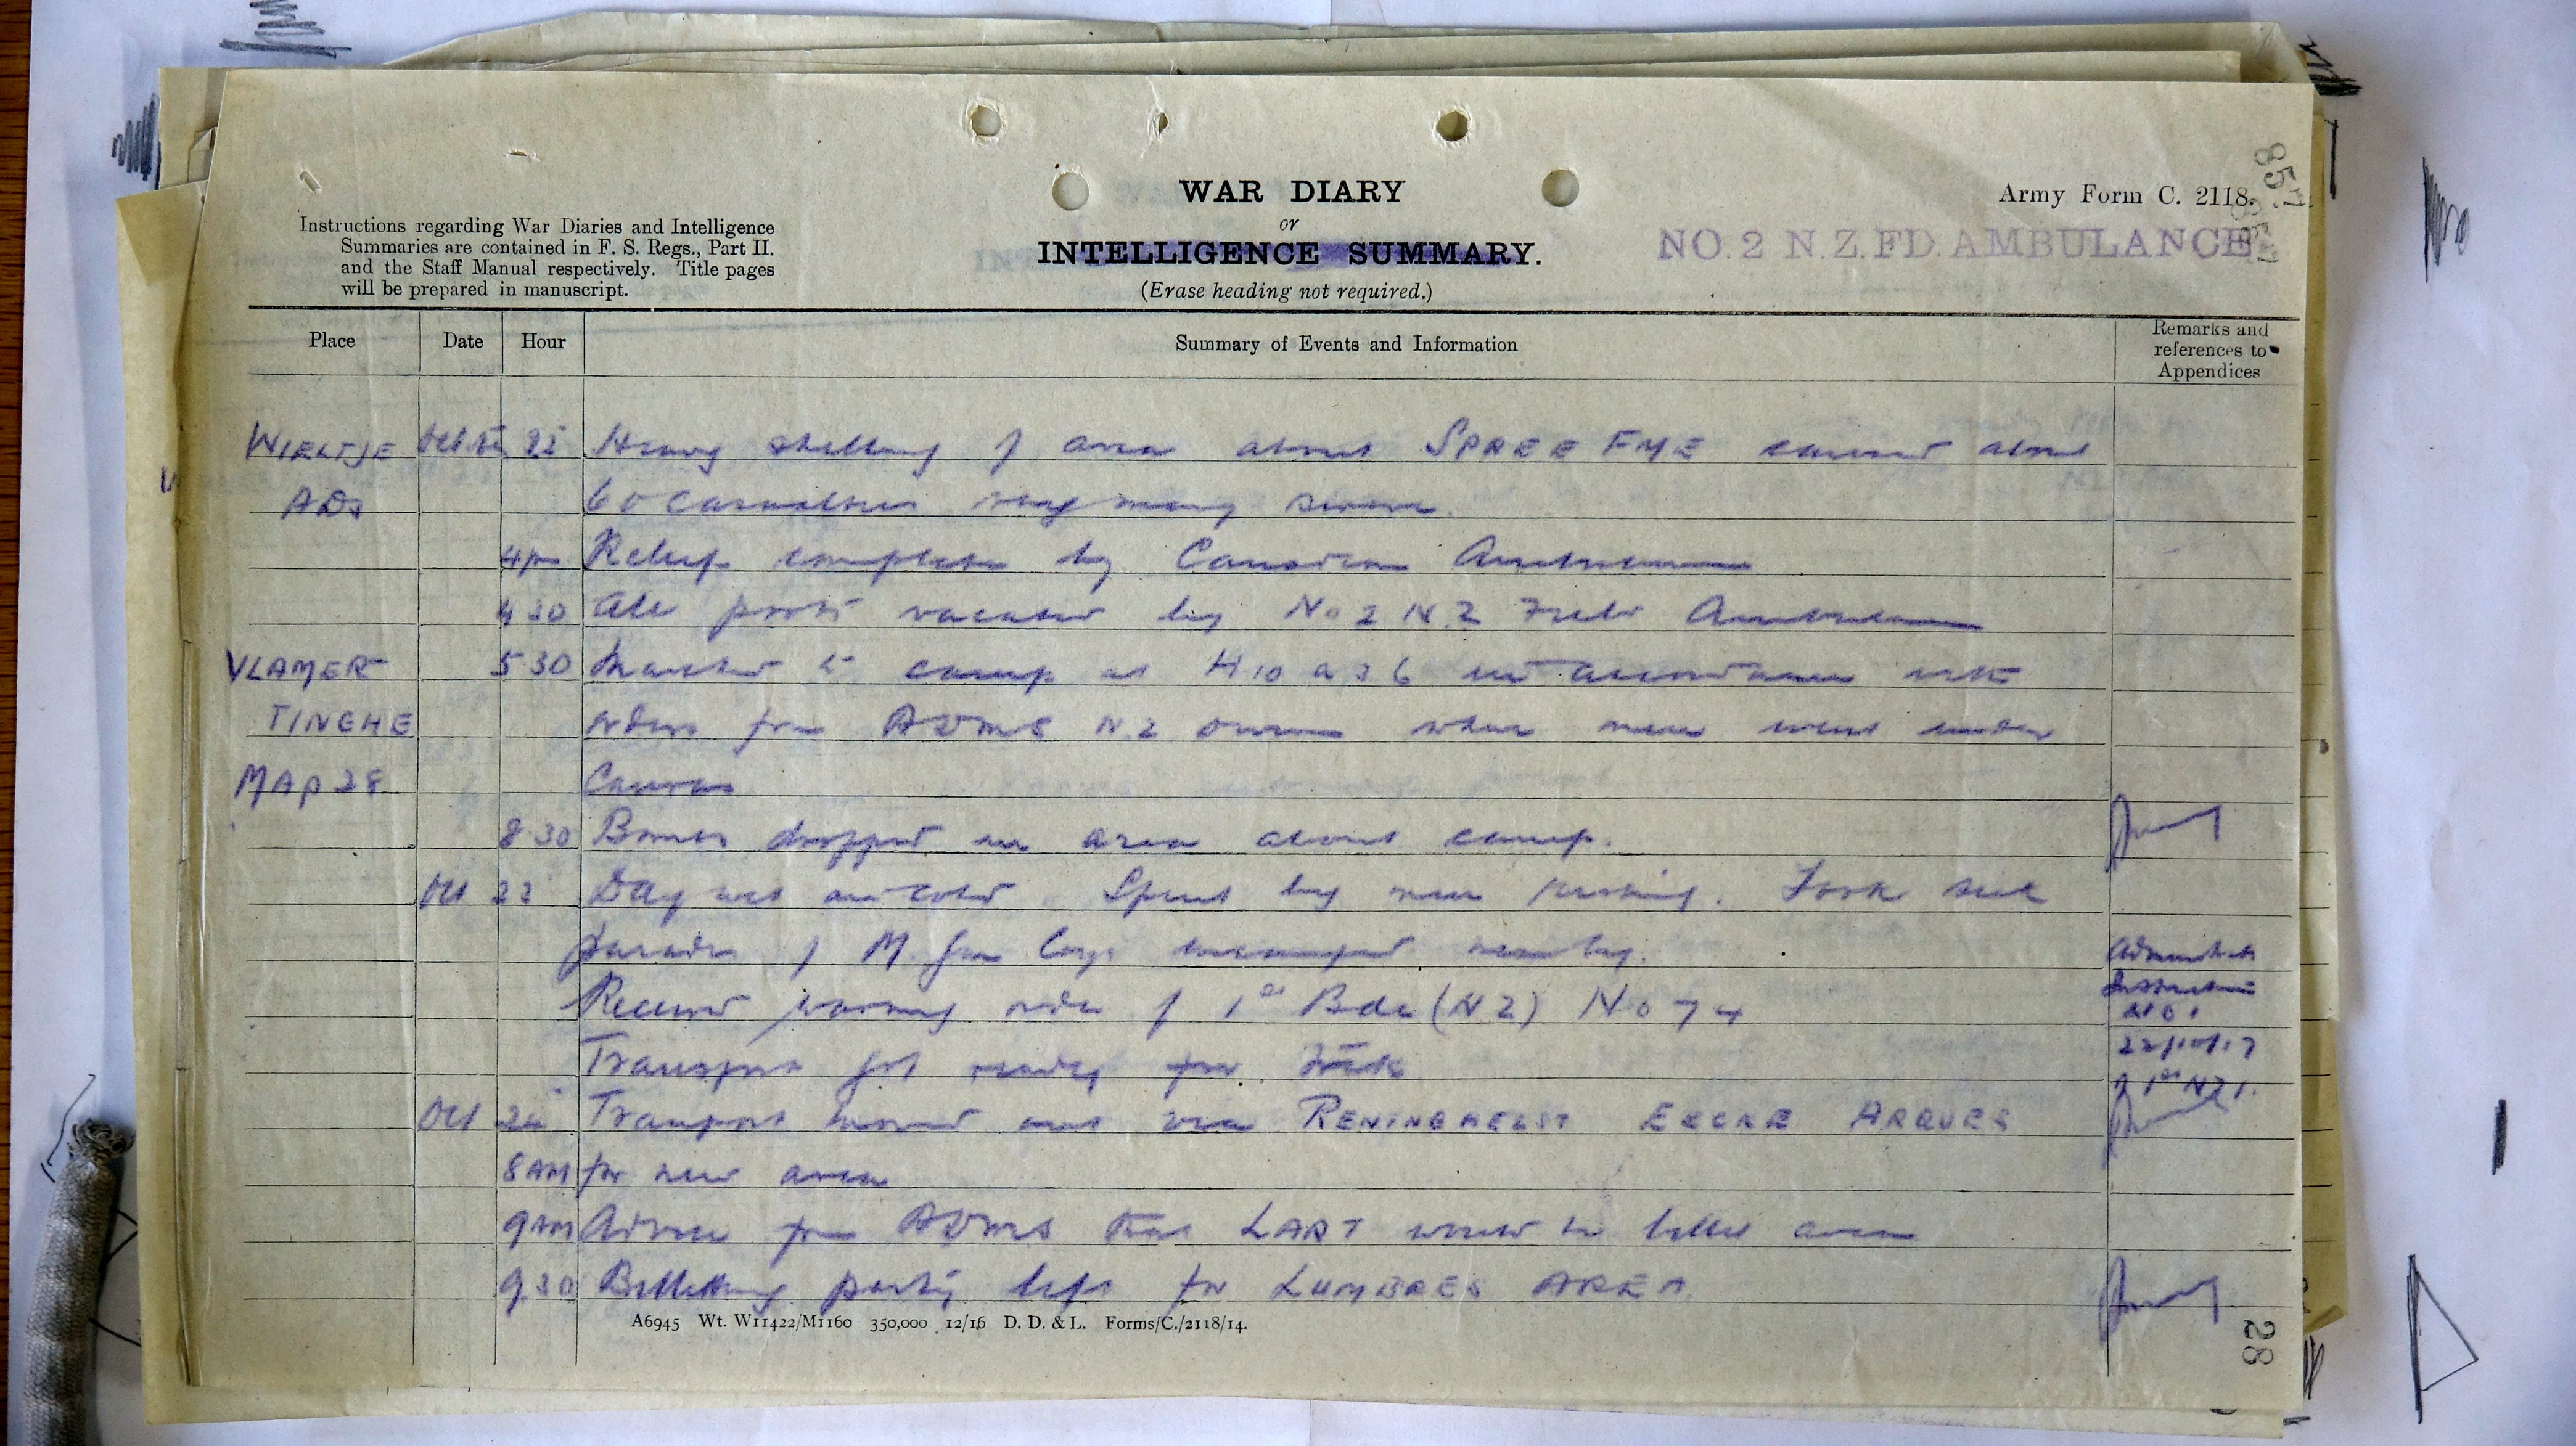 WAR DIARY
or
INTELLIGENCE SUMMARY.
(Erase heading not required.)
Instructions regarding War Diaries and Intelligence
Summaries are contained in F. S. Regs., Part II.
and the Staff Manual respectively. Title pages
will be prepared in manuscript.
Army Form C. 2118.
NO. 2 N.Z. FD. AMBULANCE
Place Date Hour Summary of Events and Information Remarks and references to Appendices
WIELTJE Heavy shelling of area about SPREE FME caused about
ADS 60 casualties many severe.
4pm Relief complete by Canadian Ambulance
4 30 All posts vacated by No 2 N.Z Field Ambulance
VLAMER- 5 30 Marched to camp at H 10 a 3 6 in accordance with
TINGHE orders from ADMS N.Z Division where men went under
MAP 28 Canvas
8 30 Bombs dropped in area about camp.
Oct 22 Day wet and cold. Spent by men resting. Took sick
parade of M. Gun Coys encamped nearby.
Received warning order of 1st Bde (NZ) No 74
Transport got ready for trek
Administrative
Instruction
No 1
22/10/17
of 1st NZ
Oct 24 Transport moved out via RENINGHELST EECKE ARQUES
8 AM for new area
9 AM Advice from ADMS that LART would be billet area
9.30 Billetting party left for LUMBRES AREA
A6945 Wt. W11422/M1160 350,000 12/16 D. D. & L. Forms/C./2118/14.
28